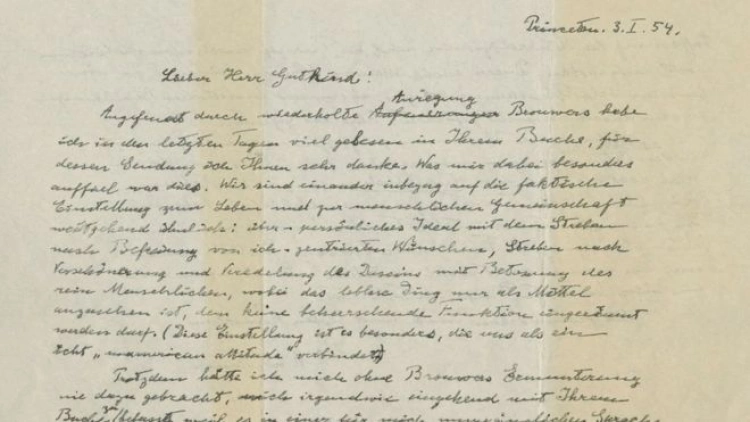 Princeton. 3. I. 54.
Lieber Herr Gutkind!
Anregung
Angefeuert durch wiederholte Brouwers habe
ich in den letzten Tagen viel gelesen in Ihrem Buche, für
dessen Sendung ich Ihnen sehr danke. Was mir dabei besonders
auffiel war dies. Wir sind einander inbezug auf die faktische
Einstellung zum Leben und zur menschlichen Gemeinschaft
weitgehend ähnlich: über-persönliches Ideal mit dem Streben
nach Befreiung von ich-zentrierten Wünschen, Streben nach
Verschönerung und Veredelung des Daseins mit Betonung des
rein Menschlichen, wobei das leblose Ding nur als Mittel
anzusehen ist, dem keine beherrschende Funktion eingeräumt
werden darf. (Diese Einstellung ist es besonders, die uns als ein
echt „unamerican attitude" verbindet)
Trotzdem hätte ich mich ohne Brouwers Ermunterung
nie dazu gebracht, mich irgendwie eingehend mit Ihrem
Buche weil es in einer für mich unzugänglichen Sprache